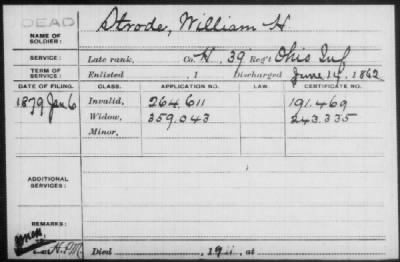 DEAD
Strode, William H
NAME OF SOLDIER:
SERVICE: Late rank, Co. H. 39 Reg't Ohio Inf
TERM OF SERVICE: Enlisted , 1 Discharged June 14, 1862
DATE OF FILING. CLASS. APPLICATION NO. LAW. CERTIFICATE NO.
1879 Jan 6 Invalid, 264.611 191.469
Widow, 359.043 243.335
Minor,
ADDITIONAL SERVICES:
REMARKS:
Died , 19 , at